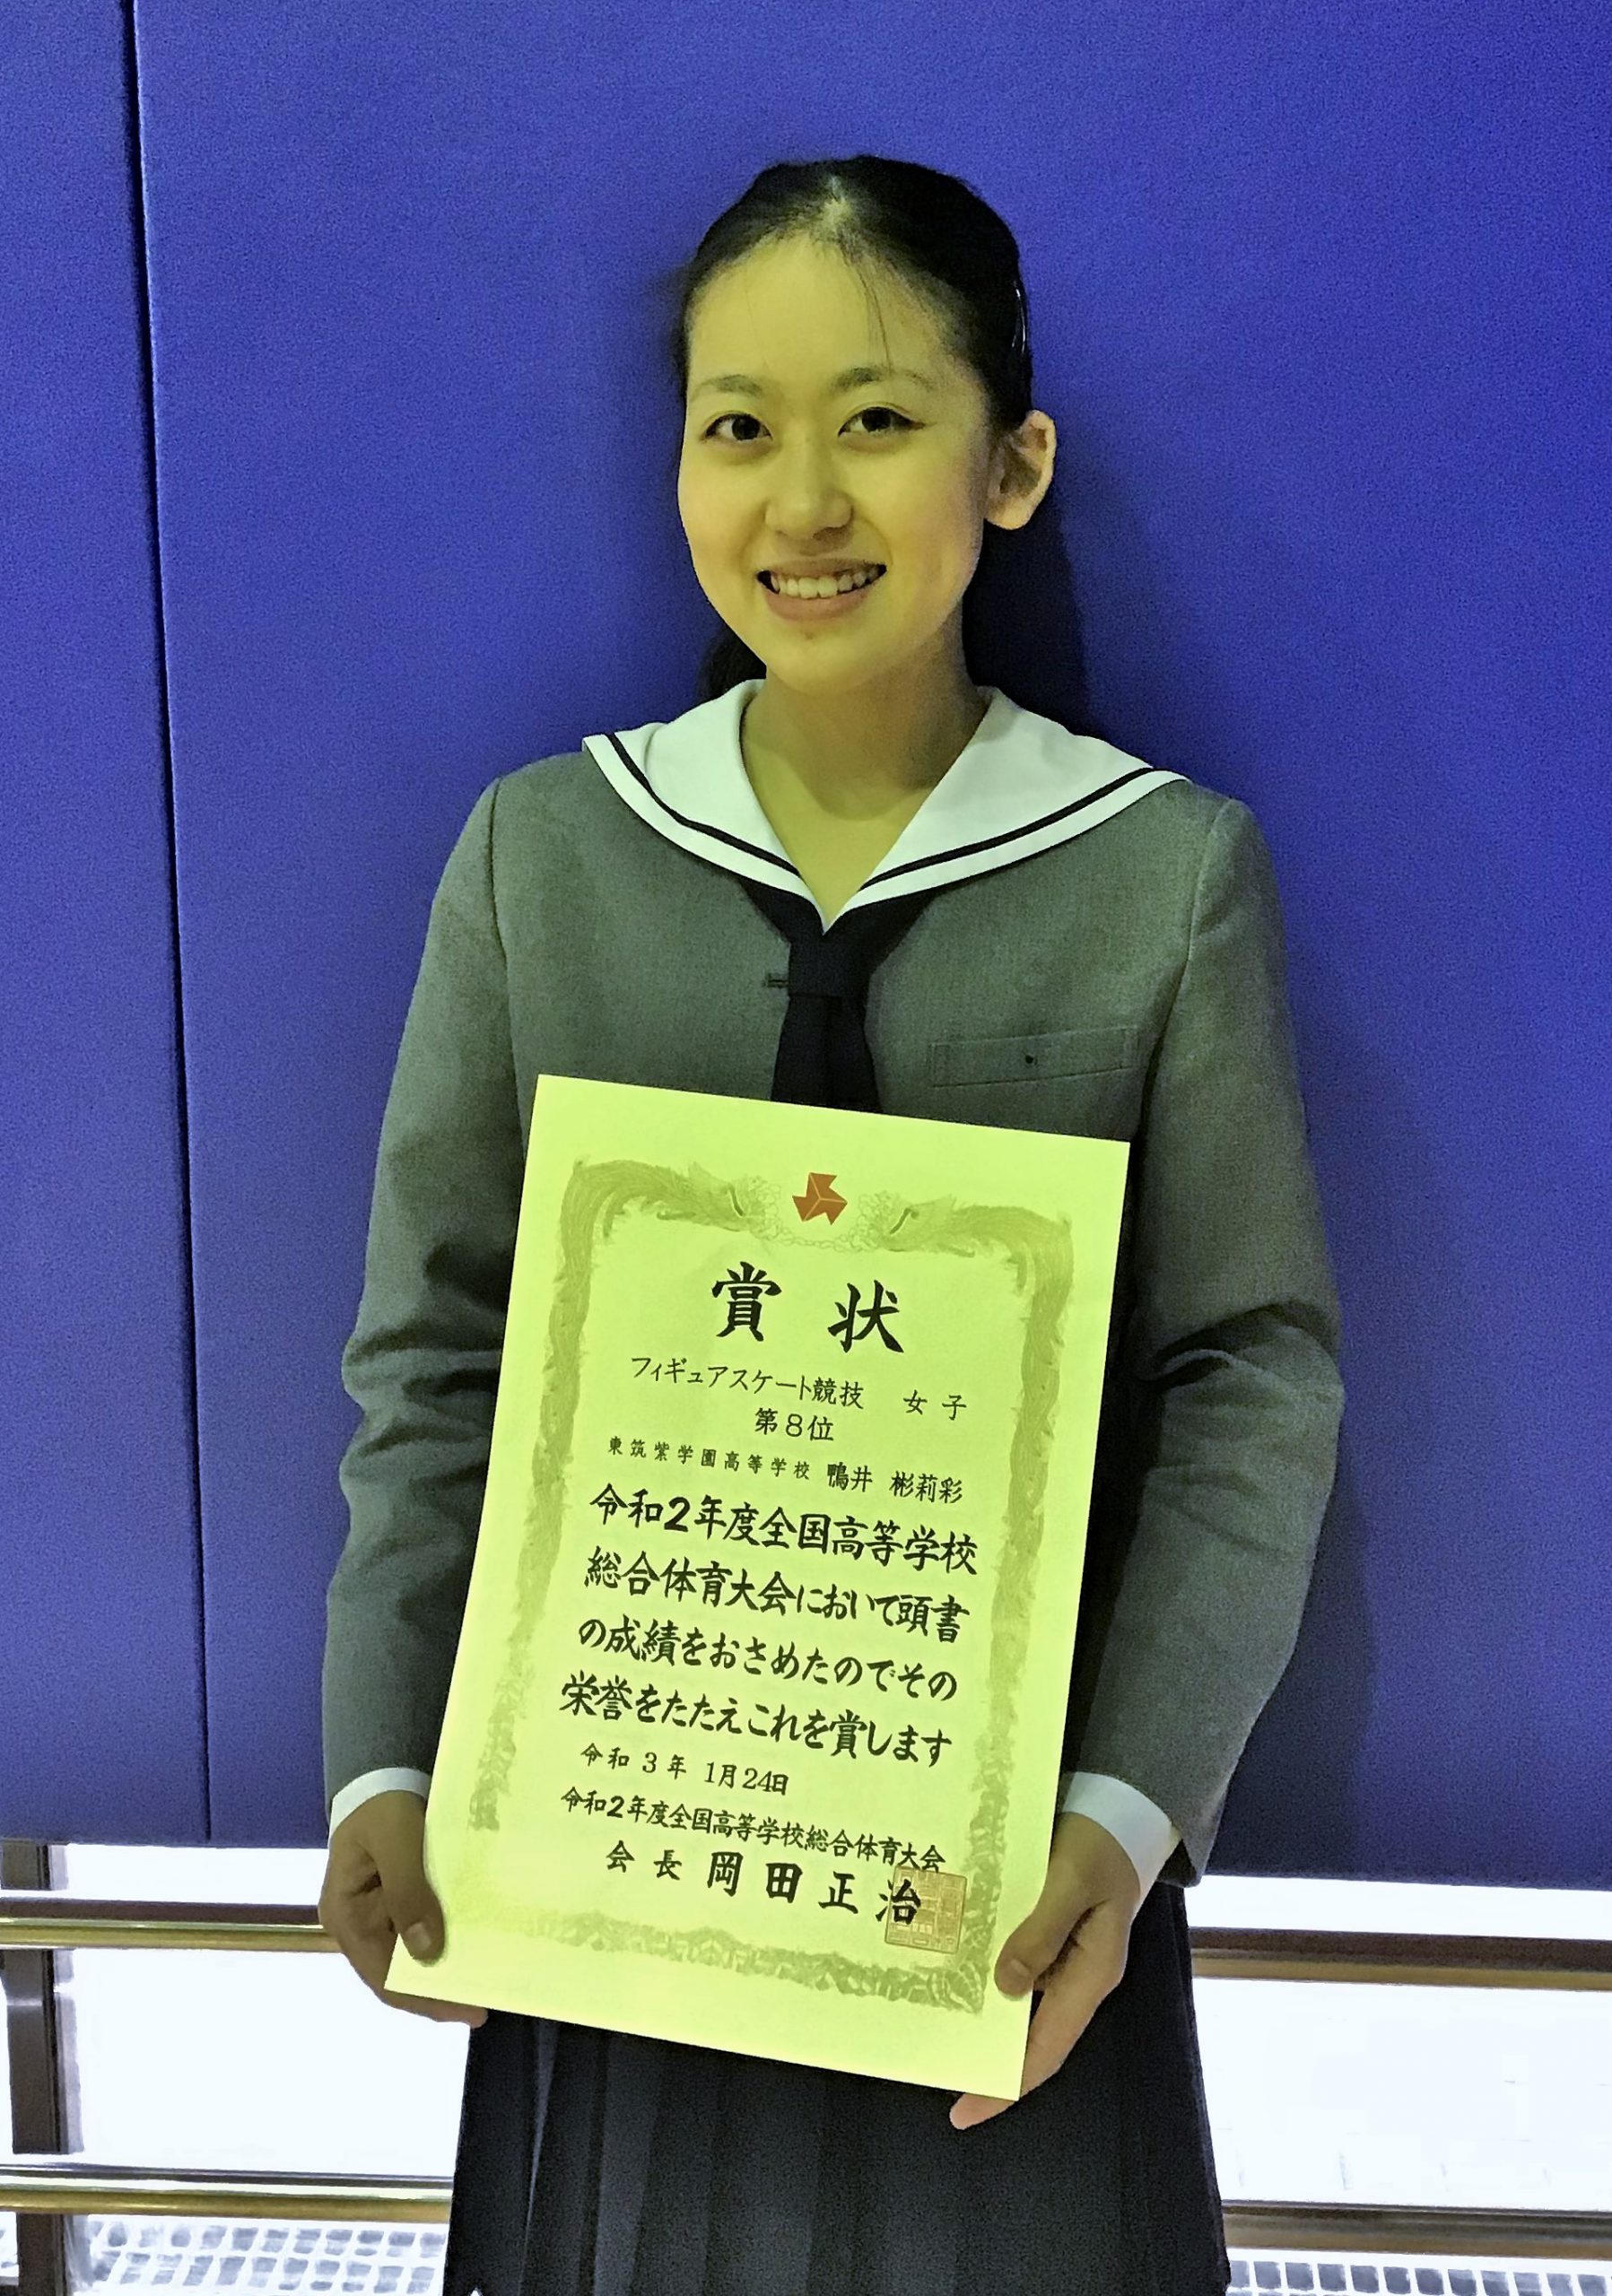 賞状
フィギュアスケート競技 女子
第8位
東筑紫学園高等学校 鴨井 彬莉彩
令和2年度全国高等学校
総合体育大会において頭書
の成績をおさめたのでその
栄誉をたたえこれを賞します
令和3年1月24日
令和2年度全国高等学校総合体育大会
会長 岡田正治